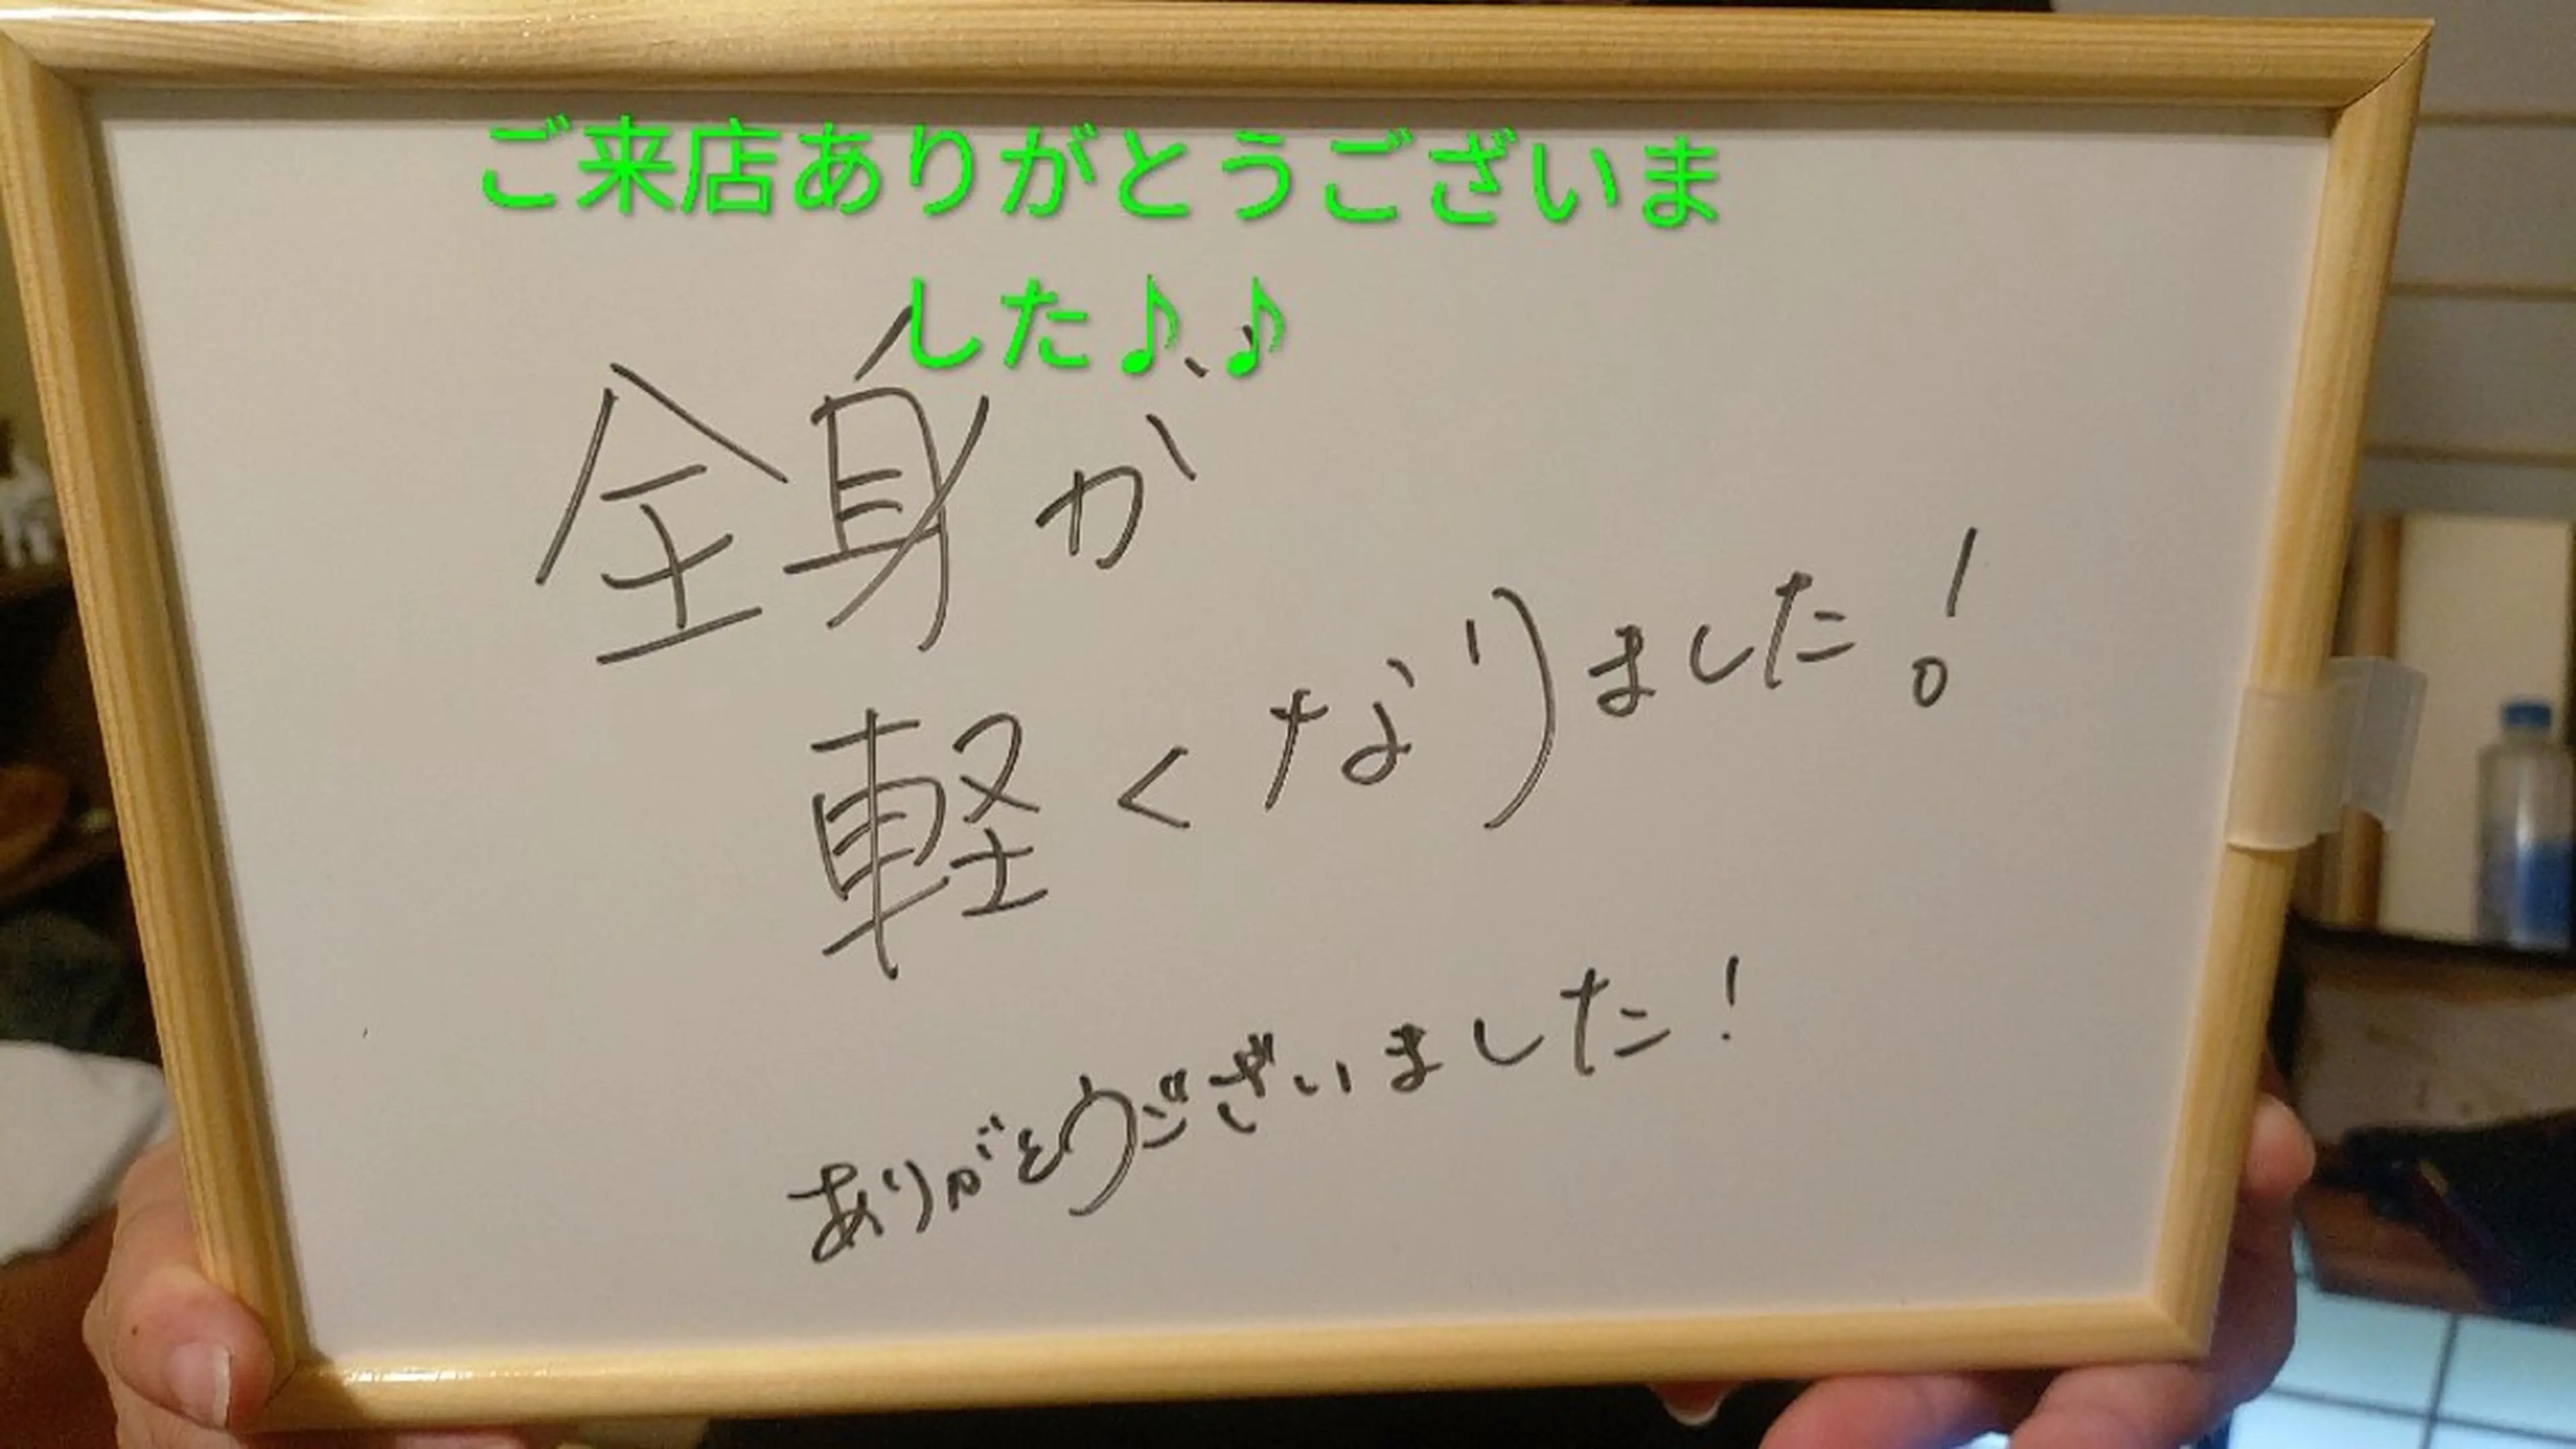 ご来店ありがとうございま
した♪♪
全身が
軽くなりました!
ありがとうございました!